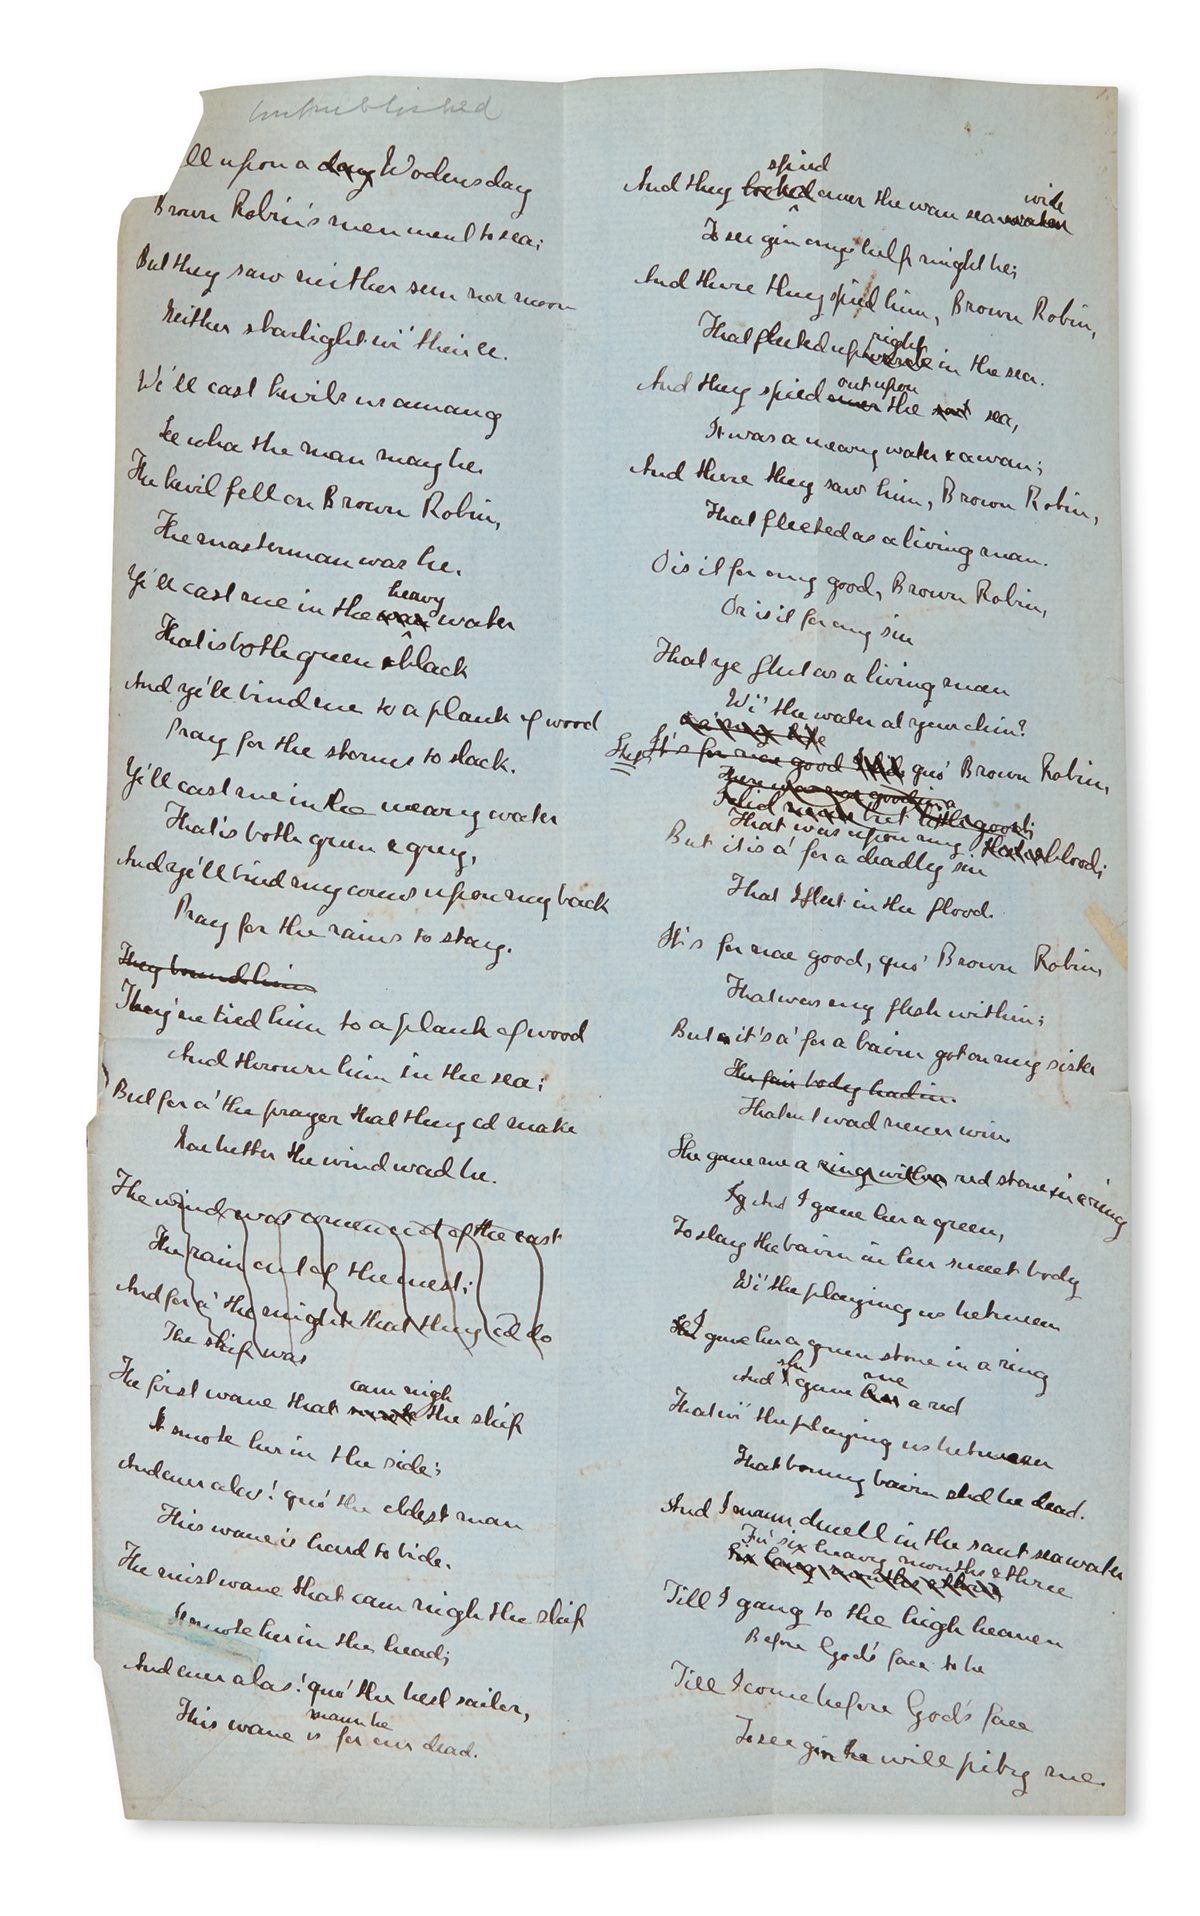 Unpublished
ll upon a day Wodensday
Brown Robin's men went to sea;
But they saw neither sun nor moon
Neither starlight wi' their ee.
We'll cast kevils us amang
See wha the man may be.
The kevil fell on Brown Robin,
The masterman was he.
heavy
Ye'll cast me in the wan water
That is both green & black
And ye'll bind me to a plank of wood
Pray for the storms to slack.
Ye'll cast me in the weary water
That is both green & grey,
And ye'll bind my arms upon my back
Pray for the rains to stay.
They bound him
They've tied him to a plank of wood
And thrown him in the sea;
But for a' the prayer that they cd make
Nae better the wind wad be.
The wind was comen out of the east
The rain out of the west;
And for a' the might that they cd do
The ship was
cam nigh
The first wave that smote the ship
It smote her in the side;
And ever alas! quo' the eldest man
This wave is hard to bide.
The neist wave that cam nigh the ship
It smote her in the head;
And ever alas! quo' the best sailor,
maun be
This wave is for our dead.
spied wide
And they looked ower the wan sea water
To see gin ony help might be;
And there they spied him, Brown Robin,
right
That fleeted up in the sea.
out upon
And they spied ower the saut sea,
It was a weary water & a wan;
And there they saw him, Brown Robin,
That fleeted as a living man.
O is it for ony good, Brown Robin,
Or is it for ony sin
That ye fleet as a living man
Wi' the water at your chin?
It's for nae good quo' Brown Robin,
That was upon my blood;
But it is a' for a deadly sin
That I fleet in the flood.
It is for nae good, quo' Brown Robin,
That was my flesh within;
But it's a' for a bairn got on my sister
The fair body had in.
That wad never win.
She gave me a ring with a red stone in a ring
And I gave her a green,
To slay the bairn in her sweet body
Wi' the playing us between
I
She gave her a green stone in a ring
she me
And I gave her a red
That wi' the playing us between
That bonny bairn shd be dead.
And I maun dwell in the saut sea water
Fu' six heavy months & three
Six lang months & three
Till I gang to the high heaven
Before God's face to be
Till I come before God's face
To see gin he will pity me.